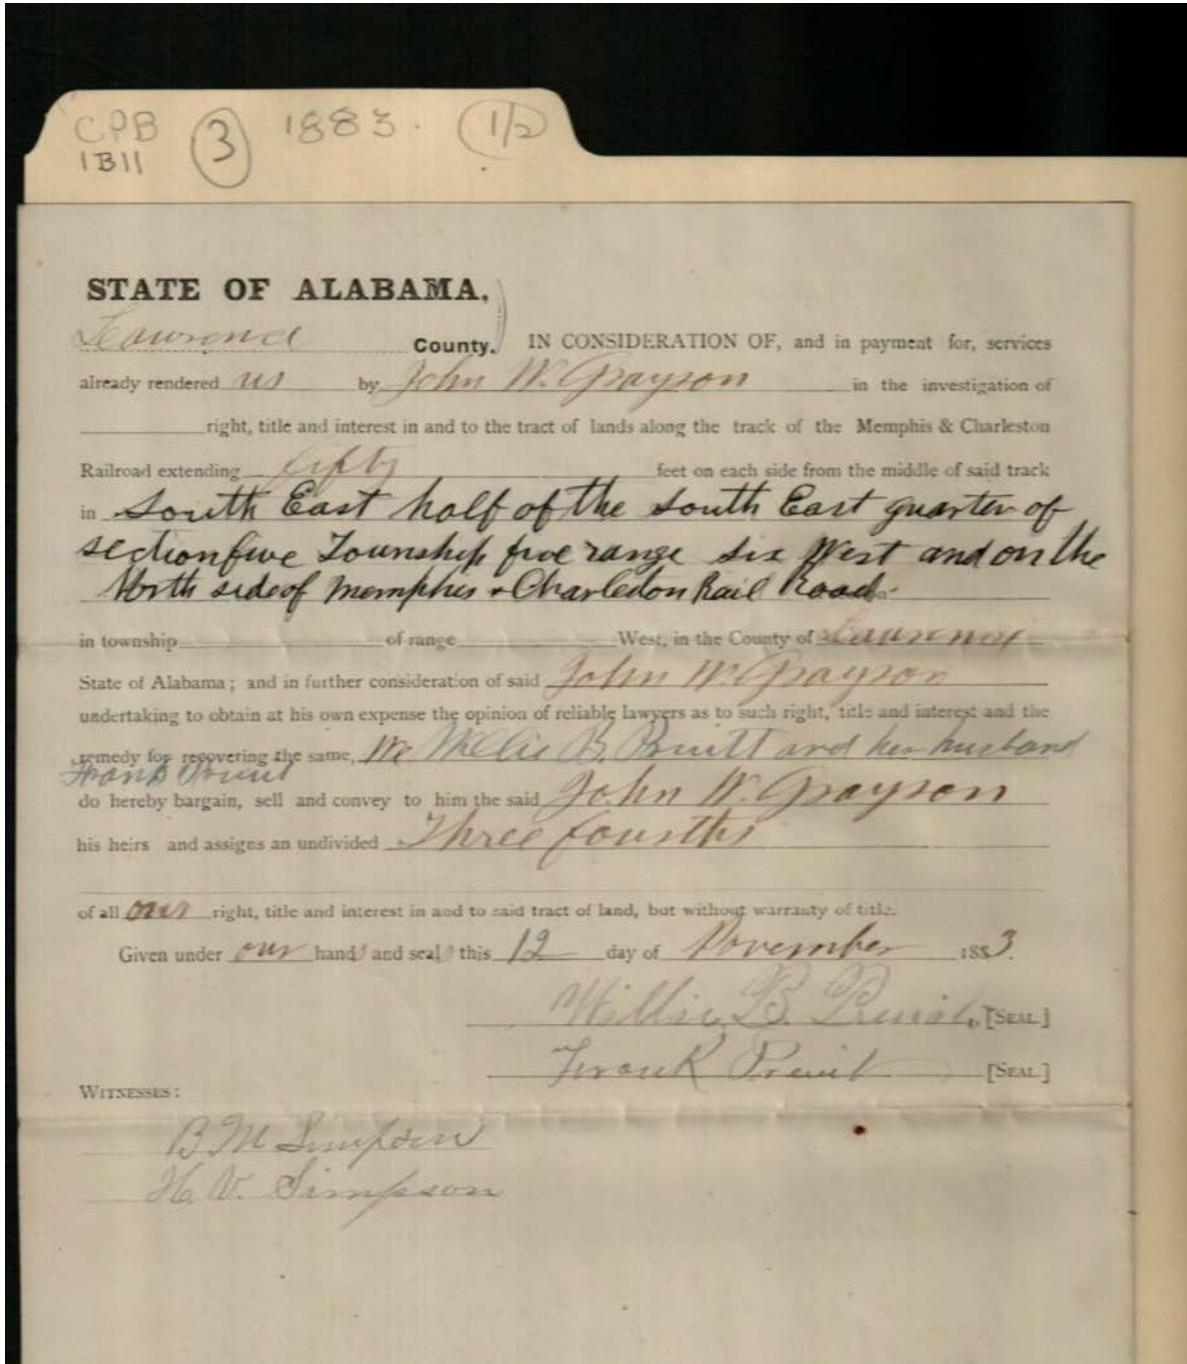 CPB 3 1883. 1/2
1B11
STATE OF ALABAMA,
Lawrence County. IN CONSIDERATION OF, and in payment for, services
already rendered us by John W. Grayson in the investigation of
right, title and interest in and to the tract of lands along the track of the Memphis & Charleston
Railroad extending fifty feet on each side from the middle of said track
in South East half of the South East quarter of
section five Township five range six West and on the
North side of Memphis & Charleston Rail Road.
in township of range West, in the County of Lawrence
State of Alabama; and in further consideration of said John W. Grayson
undertaking to obtain at his own expense the opinion of reliable lawyers as to such right, title and interest and the
remedy for recovering the same, We Willie B. Pruitt and her husband
Frank Pruit
do hereby bargain, sell and convey to him the said John W. Grayson
his heirs and assigns an undivided Three fourths
of all our right, title and interest in and to said tract of land, but without warranty of title.
Given under our hands and seals this 12 day of November 1883.
Willie B. Pruit, [SEAL]
Frank Pruit [SEAL]
WITNESSES:
B M Simpson
H. V. Simpson